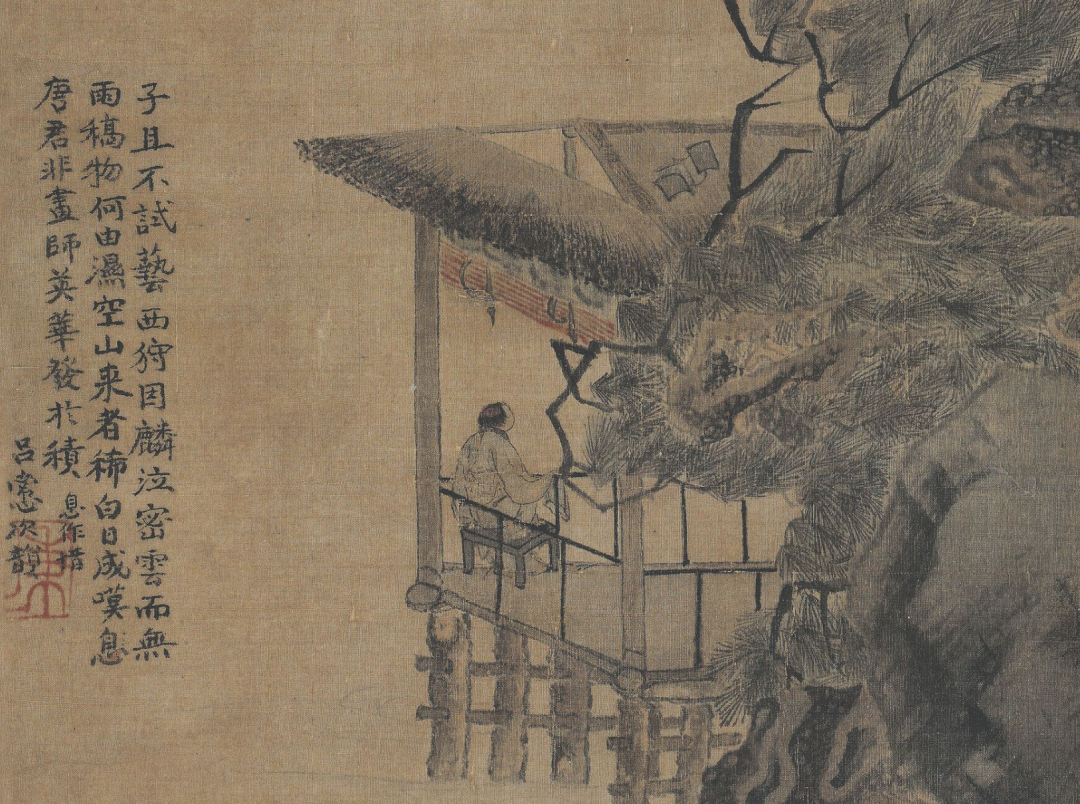 子且不試藝西狩因麟泣密雲而無
雨稿物何由濕空山来者稀白日成嘆息
唐君非畫師英華發於積
息作惜
呂㦂次韻